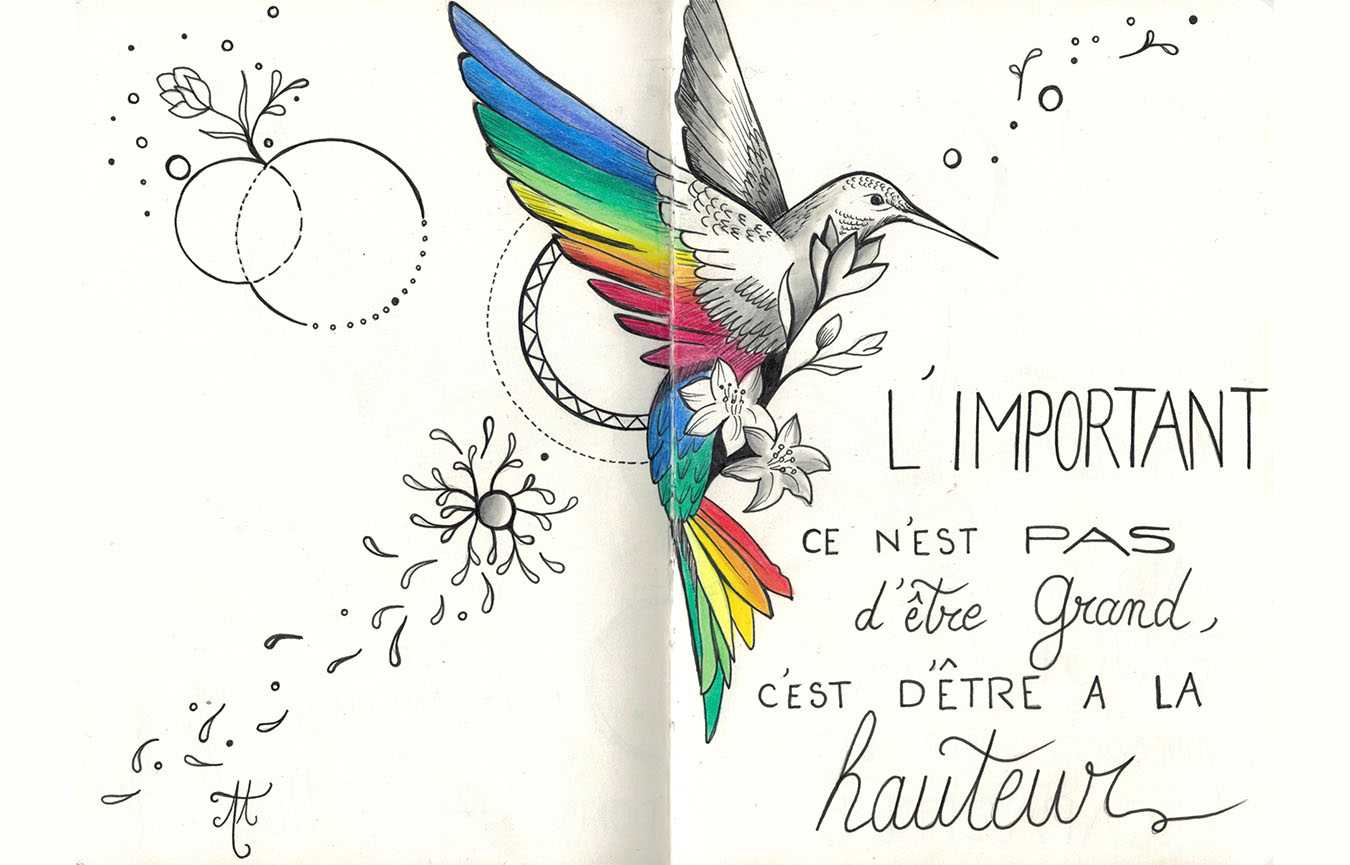 L'IMPORTANT
CE N'EST PAS
d'être Grand,
C'EST D'ÊTRE A LA
hauteur